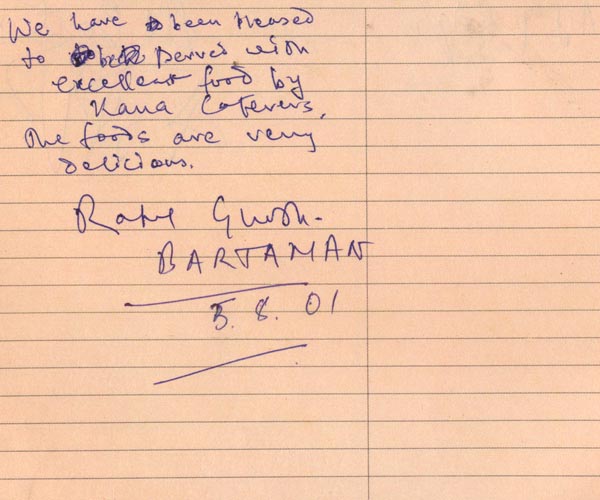 We have been pleased
to be served with
excellent food by
Kana Caterers,
The foods are very
delicious.
Ghosh.
BARTAMAN
5.8.01